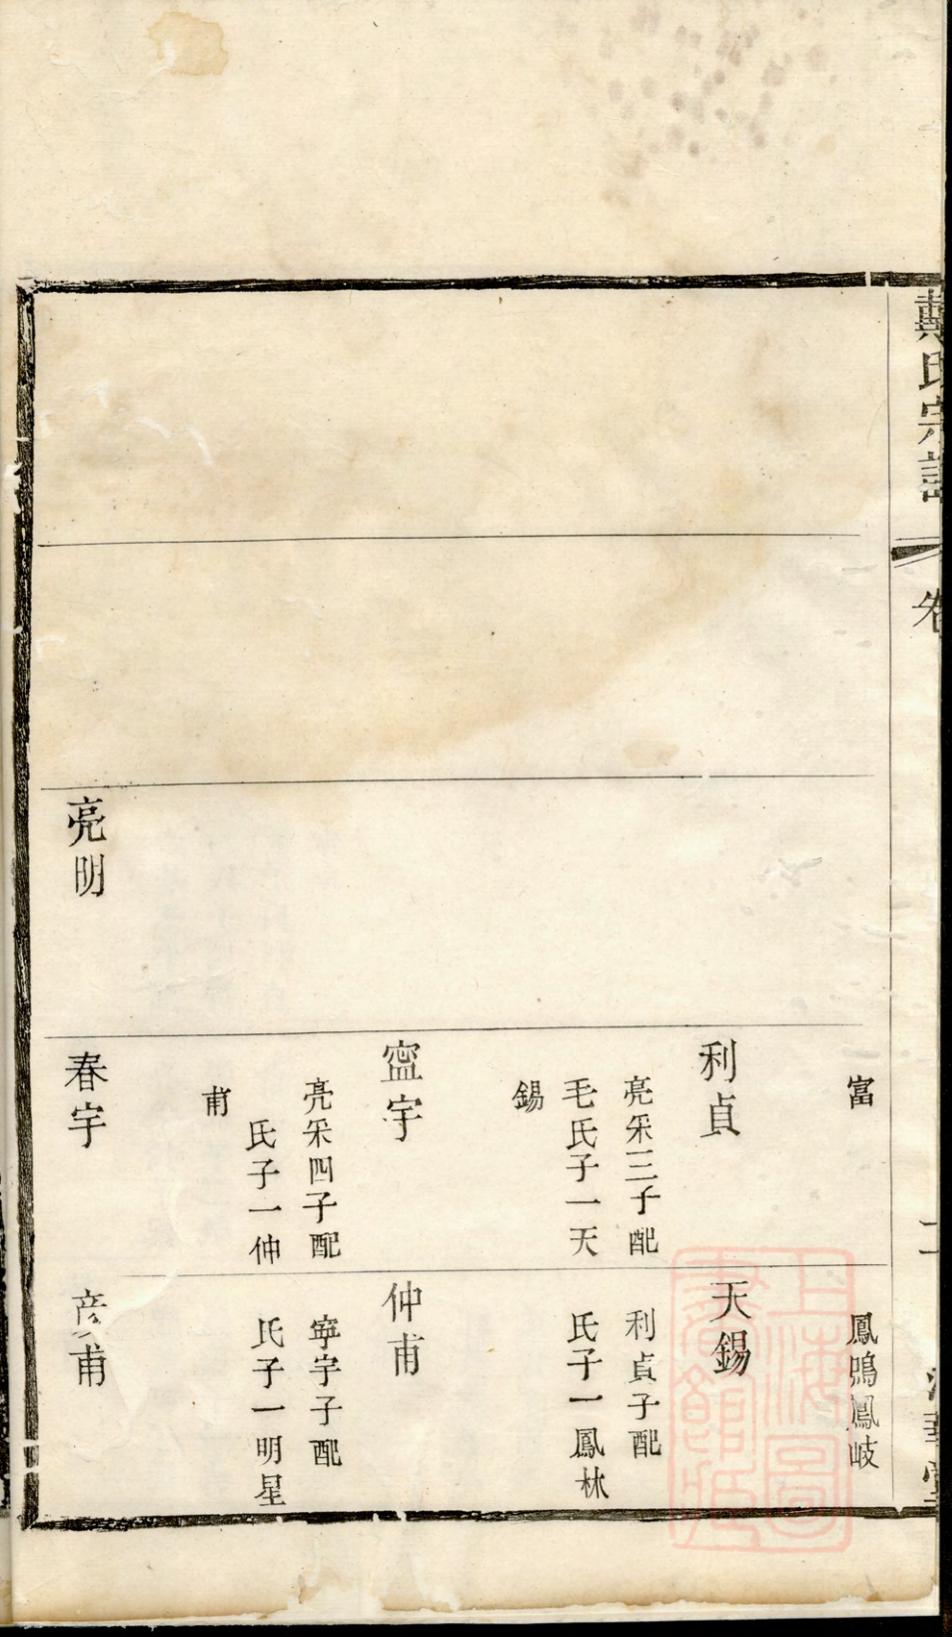 戴氏宗譜
卷
二
亮明
富
利貞
亮采三子配
毛氏子一天
錫
寍宇
亮采四子配
氏子一仲
甫
春宇
鳳鳴鳳岐
天錫
利貞子配
氏子一鳳林
仲甫
寧宇子配
氏子一明星
彦甫